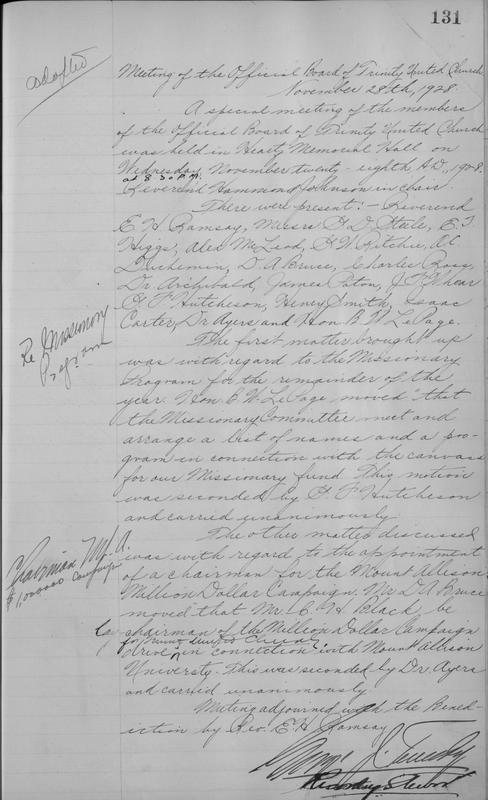 131
adopted
Meeting of the Official Board of Trinity United Church
November 28th, 1928.
A special meeting of the members
of the Official Board of Trinity United Church
was held in Heartz Memorial Hall on
Wednesday November twenty-eighth A.D., 1928.
at 8 30 P.M.
Reverend Hammond Johnson in chair.
There were present:- Reverend
E. H. Ramsay, Messrs D. Steele, E. T
Higgs, Alex McLeod, Ritchie,
Duchemin, D. A Bruce, Charles Ross,
Dr. Archibald, James Paton,
Hutcheson, Henry Smith, Isaac
Carter, Dr Ayers and Hon. B W. LePage.
Re Missionary
Program
The first matter brought up
was with regard to the Missionary
Program for the remainder of the
year. Hon. B W. LePage moved that
the Missionary Committee meet and
arrange a list of names and a pro-
gram in connection with the canvass
for our Missionary fund. This motion
was seconded by Hutcheson
and carried unanimously.
Chairman Mt. A.
$1,000000 Campaign
The other matter discussed
was with regard to the appointment
of a chairman for the Mount Allison
Million Dollar Campaign. Mr D A Bruce
moved that Mr. Black, be
chairman of the Million Dollar Campaign
for Trinity United Church
drive in connection with Mount Allison
University. This was seconded by Dr. Ayers
and carried unanimously.
Meeting adjourned with the Bened-
iction by Rev. E. H. Ramsay
Recording Steward